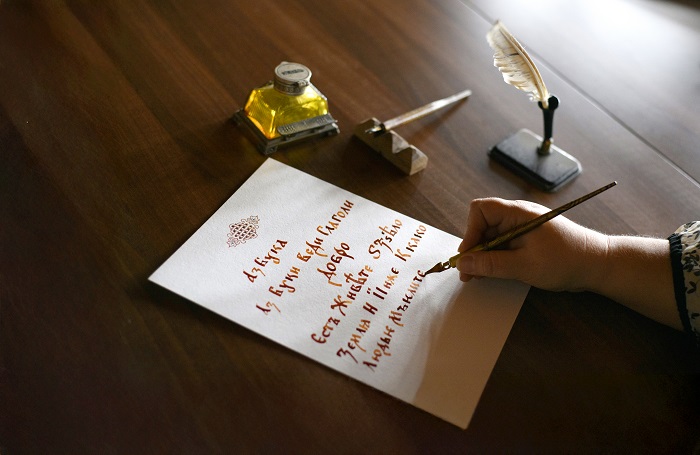 Азбука
Аз Буки Веди Глаголи
Добро
Есть Живѣте Ѕѣло
Земля И Ииже К како
Людье Мыслите